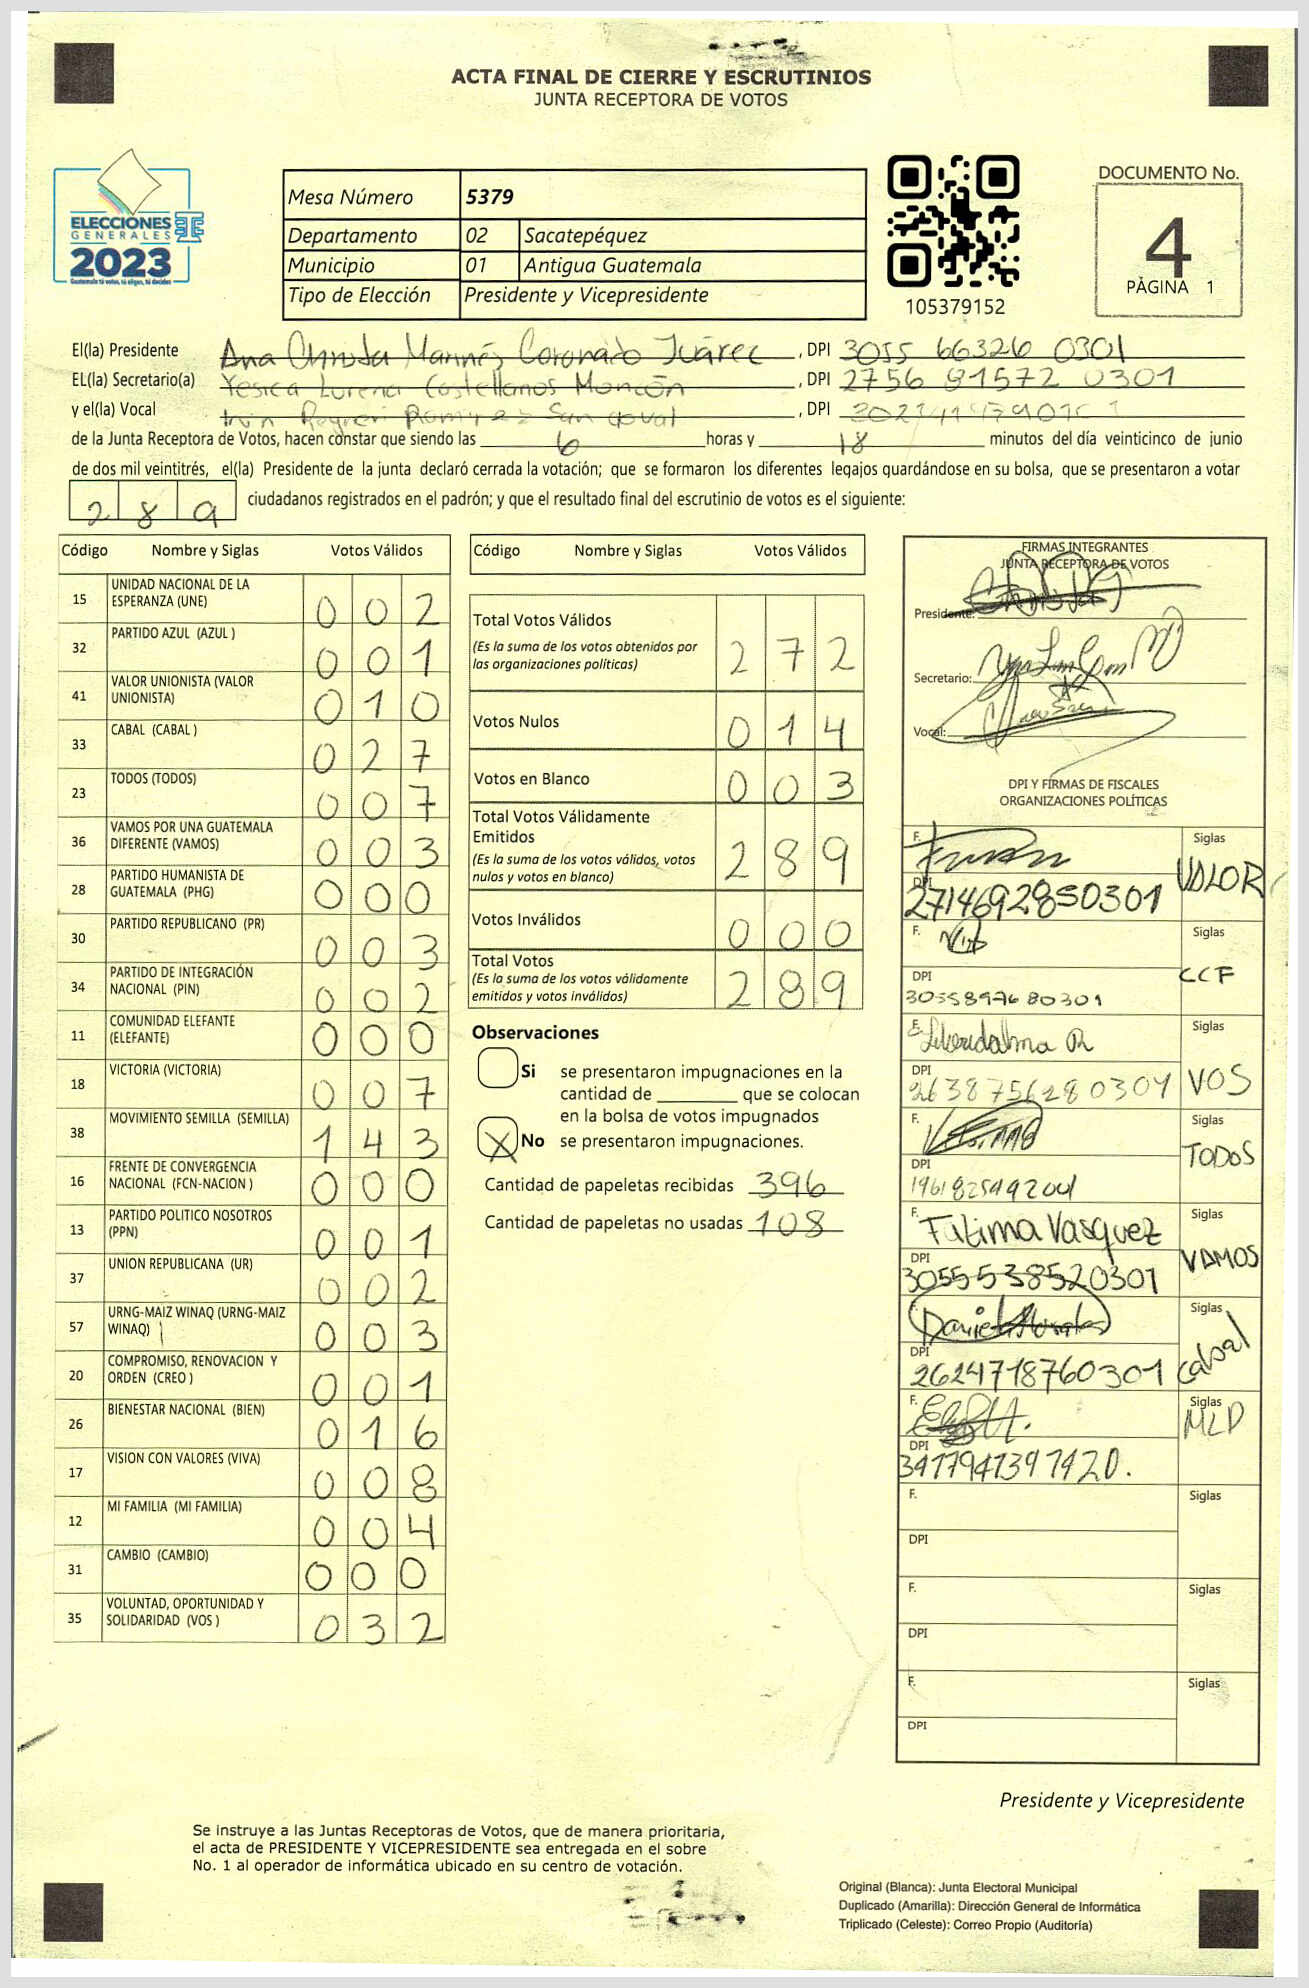 ACTA FINAL DE CIERRE Y ESCRUTINIOS
JUNTA RECEPTORA DE VOTOS
ELECCIONES
GENERALES
2023
Guatemala tú votas, tú eliges, tú decides
Mesa Número 5379
Departamento 02 Sacatepéquez
Municipio 01 Antigua Guatemala
Tipo de Elección Presidente y Vicepresidente
105379152
DOCUMENTO No.
4
PÀGINA 1
El(la) Presidente Ana Christa Marinés Coronado Juárez, DPI 3055 66326 0301
EL(la) Secretario(a) Yesica Lorena Castellanos Monzón, DPI 2756 81572 0301
y el(la) Vocal Ramirez Sandoval, DPI
de la Junta Receptora de Votos, hacen constar que siendo las 6 horas y 18 minutos del día veinticinco de junio
de dos mil veintitrés, el(la) Presidente de la junta declaró cerrada la votación; que se formaron los diferentes legajos quardándose en su bolsa, que se presentaron a votar
289 ciudadanos registrados en el padrón; y que el resultado final del escrutinio de votos es el siguiente:
Código Nombre y Siglas Votos Válidos
15 UNIDAD NACIONAL DE LA ESPERANZA (UNE) 002
32 PARTIDO AZUL (AZUL ) 001
41 VALOR UNIONISTA (VALOR UNIONISTA) 010
33 CABAL (CABAL ) 027
23 TODOS (TODOS) 007
36 VAMOS POR UNA GUATEMALA DIFERENTE (VAMOS) 003
28 PARTIDO HUMANISTA DE GUATEMALA (PHG) 000
30 PARTIDO REPUBLICANO (PR) 003
34 PARTIDO DE INTEGRACIÓN NACIONAL (PIN) 002
11 COMUNIDAD ELEFANTE (ELEFANTE) 000
18 VICTORIA (VICTORIA) 007
38 MOVIMIENTO SEMILLA (SEMILLA) 143
16 FRENTE DE CONVERGENCIA NACIONAL (FCN-NACION ) 000
13 PARTIDO POLITICO NOSOTROS (PPN) 001
37 UNION REPUBLICANA (UR) 002
57 URNG-MAIZ WINAQ (URNG-MAIZ WINAQ) 003
20 COMPROMISO, RENOVACION Y ORDEN (CREO ) 001
26 BIENESTAR NACIONAL (BIEN) 016
17 VISION CON VALORES (VIVA) 008
12 MI FAMILIA (MI FAMILIA) 004
31 CAMBIO (CAMBIO) 000
35 VOLUNTAD, OPORTUNIDAD Y SOLIDARIDAD (VOS ) 032
Código Nombre y Siglas Votos Válidos
Total Votos Válidos 272
(Es la suma de los votos obtenidos por
las organizaciones políticas)
Votos Nulos 014
Votos en Blanco 003
Total Votos Válidamente
Emitidos 289
(Es la suma de los votos válidos, votos
nulos y votos en blanco)
Votos Inválidos 000
Total Votos 289
(Es la suma de los votos válidamente
emitidos y votos inválidos)
Observaciones
Si se presentaron impugnaciones en la
cantidad de ________ que se colocan
en la bolsa de votos impugnados
X No se presentaron impugnaciones.
Cantidad de papeletas recibidas 396
Cantidad de papeletas no usadas 108
FIRMAS INTEGRANTES
JUNTA RECEPTORA DE VOTOS
Presidente:
Secretario:
Vocal:
DPI Y FIRMAS DE FISCALES
ORGANIZACIONES POLÍTICAS
F. Siglas VALOR
DPI 2714692850301
F. Siglas CCF
DPI 3055897680301
F. Siglas VOS
DPI 2638756280301
F. Siglas TODOS
DPI
F. Fatima Vasquez Siglas VAMOS
DPI 3055538520301
F. Daniela Morales Siglas cabal
DPI 2624718760301
F. Siglas MLP
DPI
F. Siglas
DPI
F. Siglas
DPI
F. Siglas
DPI
Presidente y Vicepresidente
Se instruye a las Juntas Receptoras de Votos, que de manera prioritaria,
el acta de PRESIDENTE Y VICEPRESIDENTE sea entregada en el sobre
No. 1 al operador de informática ubicado en su centro de votación.
Original (Blanca): Junta Electoral Municipal
Duplicado (Amarilla): Dirección General de Informática
Triplicado (Celeste): Correo Propio (Auditoría)